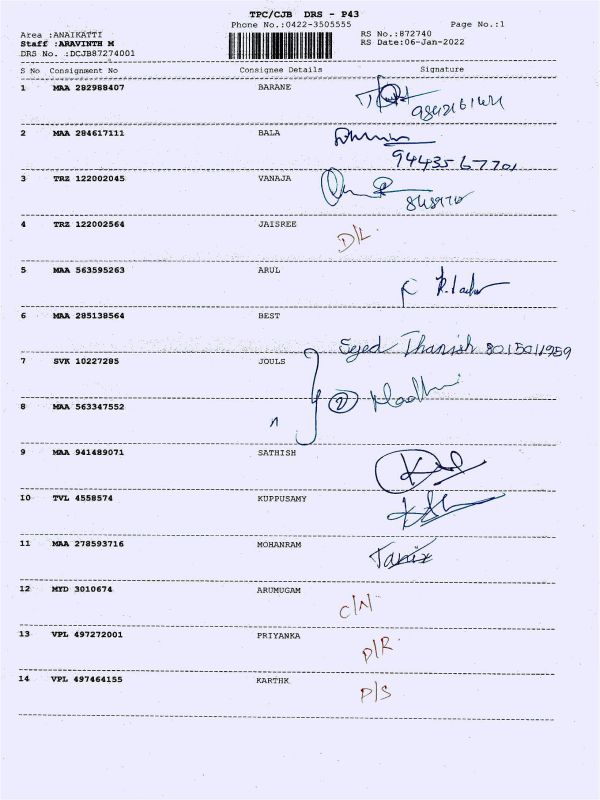 TPC/CJB DRS - P43
Phone No.:0422-3505555 Page No.:1
Area :ANAIKATTI RS No.:872740
Staff :ARAVINTH M RS Date:06-Jan-2022
DRS No. :DCJB87274001
S No Consignment No Consignee Details Signature
1 MAA 282988407 BARANE
2 MAA 284617111 BALA
9443567701
3 TRZ 122002045 VANAJA
4 TRZ 122002564 JAISREE D/L
5 MAA 563595263 ARUL
6 MAA 285138564 BEST
Syed Thanish 8015011959
7 SVK 10227285 JOULS
8 MAA 563347552 2
9 MAA 941489071 SATHISH
10 TVL 4558574 KUPPUSAMY
11 MAA 278593716 MOHANRAM
12 MYD 3010674 ARUMUGAM C/N
13 VPL 497272001 PRIYANKA D/R
14 VPL 497464155 KARTHK P/S